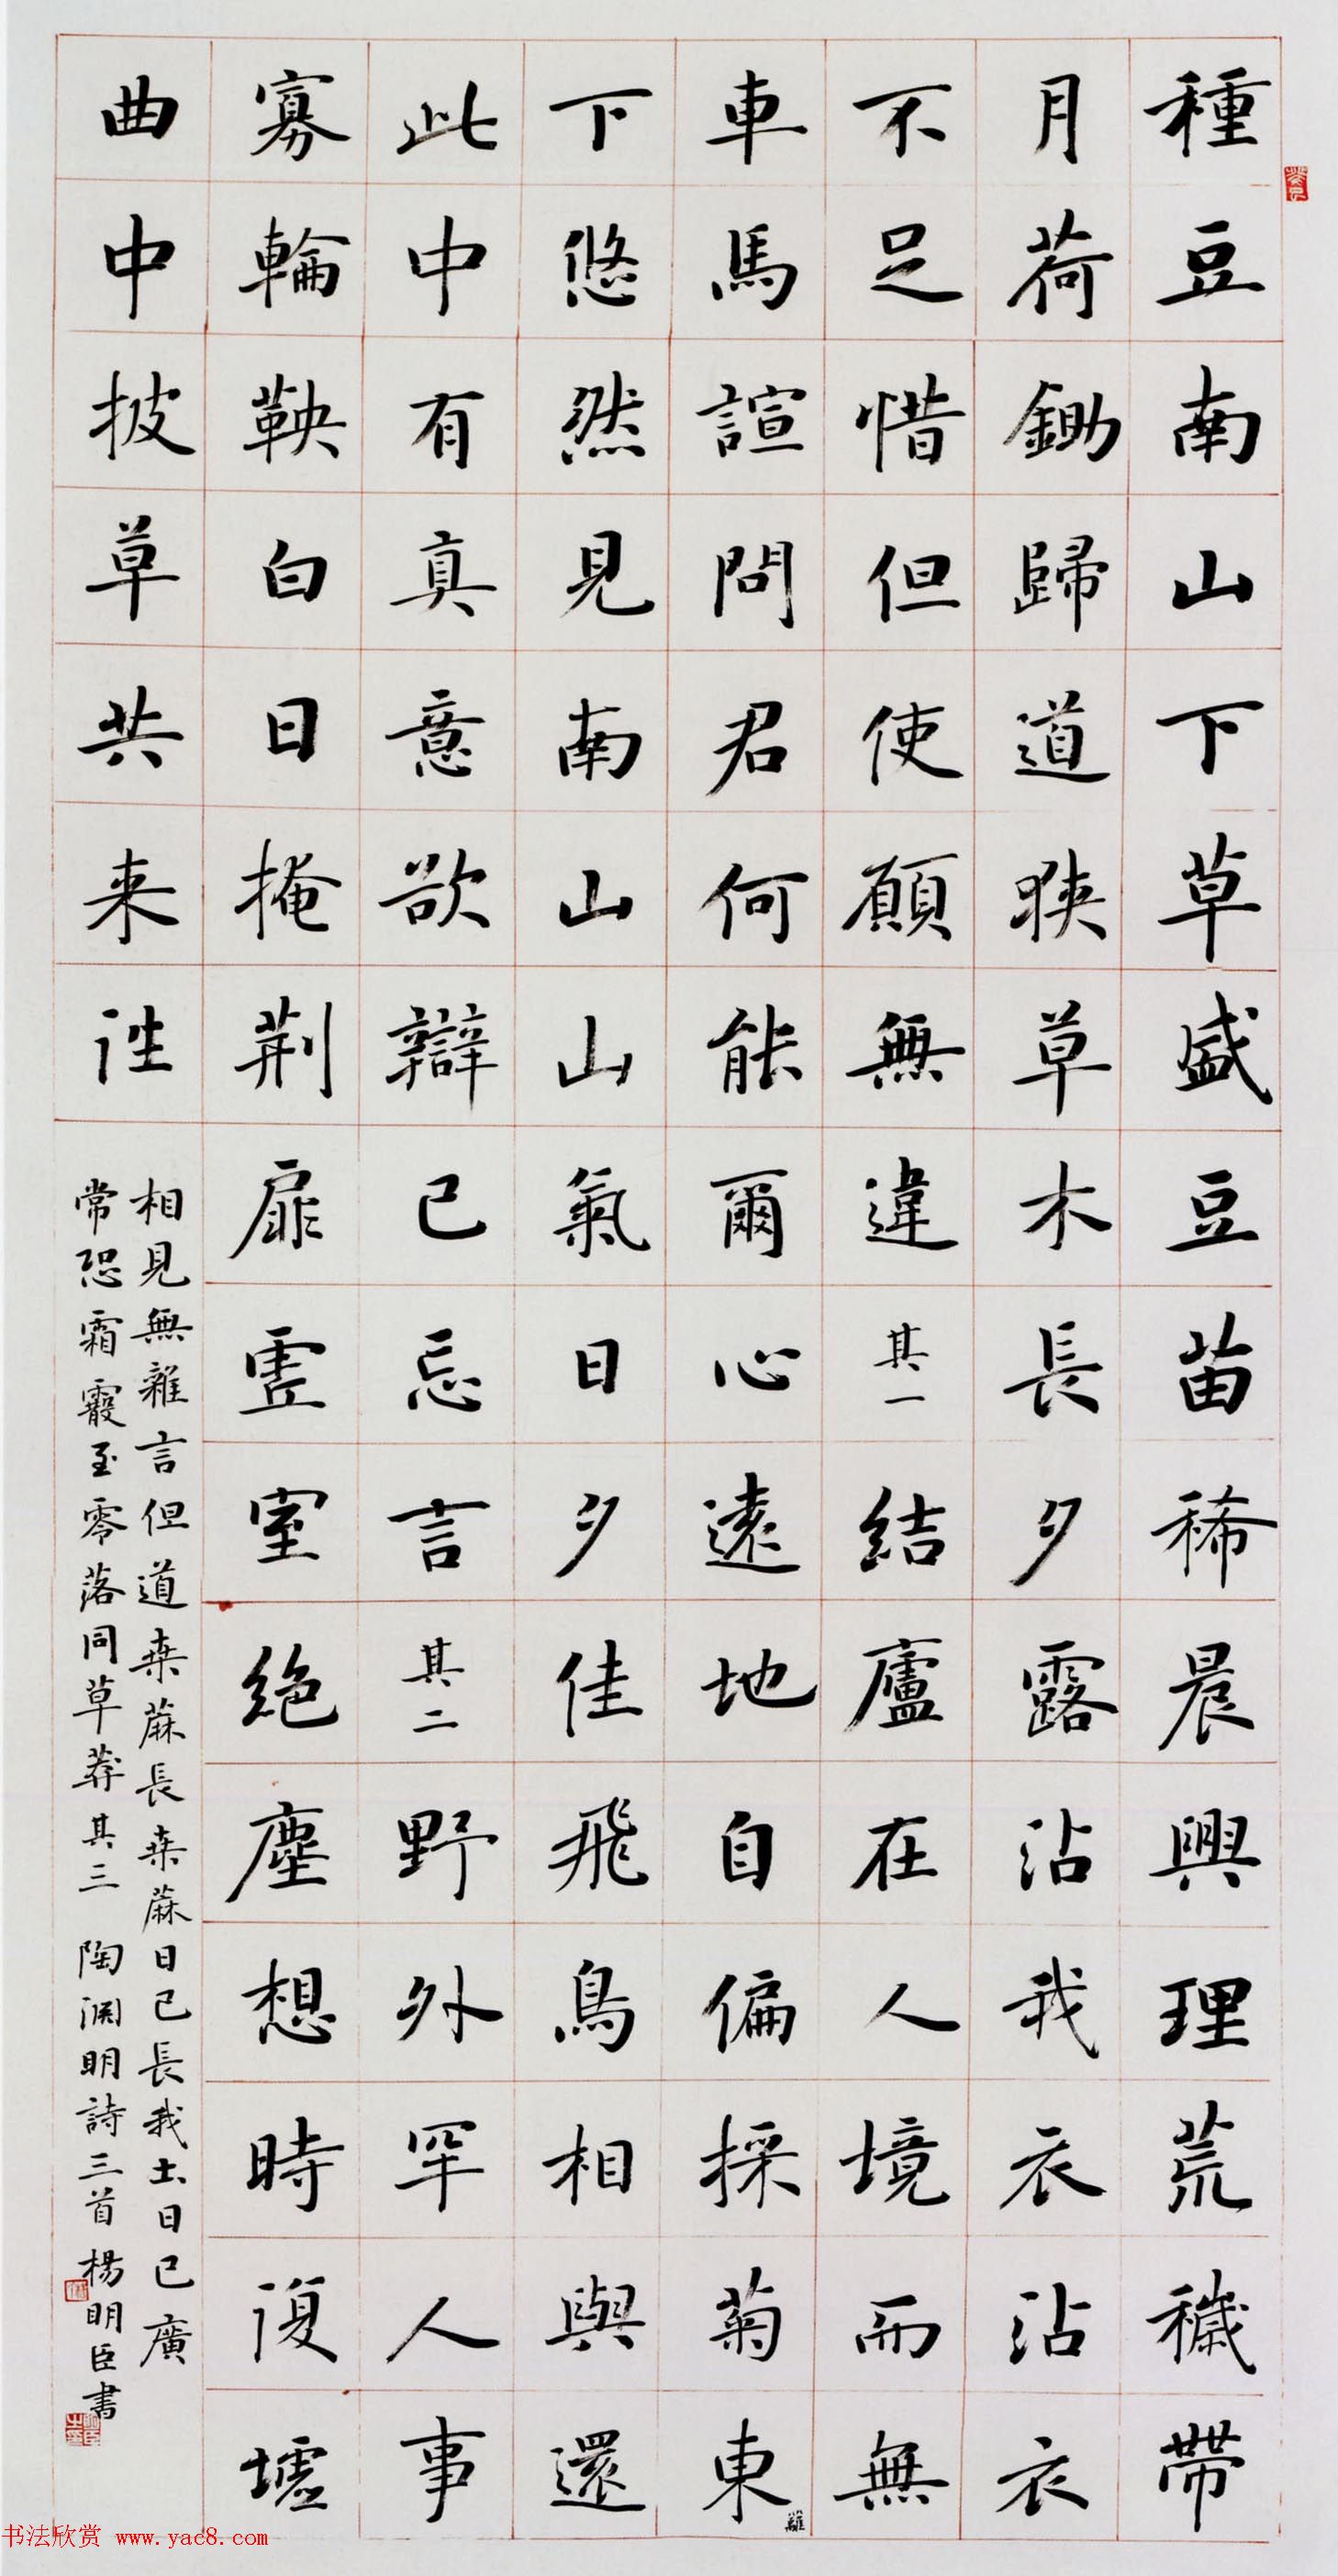 種豆南山下草盛豆苗稀晨興理荒穢帶
月荷鋤歸道狹草木長夕露沾我衣沾衣
不足惜但使願無違其一結廬在人境而無
車馬諠問君何能爾心遠地自偏採菊東籬
下悠然見南山山氣日夕佳飛鳥相與還
此中有真意欲辯已忘言其二野外罕人事
寡輪鞅白日掩荊扉虛室絕塵想時復墟
曲中披草共来往
相見無雜言但道桒蔴長桒蔴日已長我土日已廣
常恐霜霰至零落同草莽其三 陶渊明詩三首 楊明臣書
书法欣赏 www.yac8.com